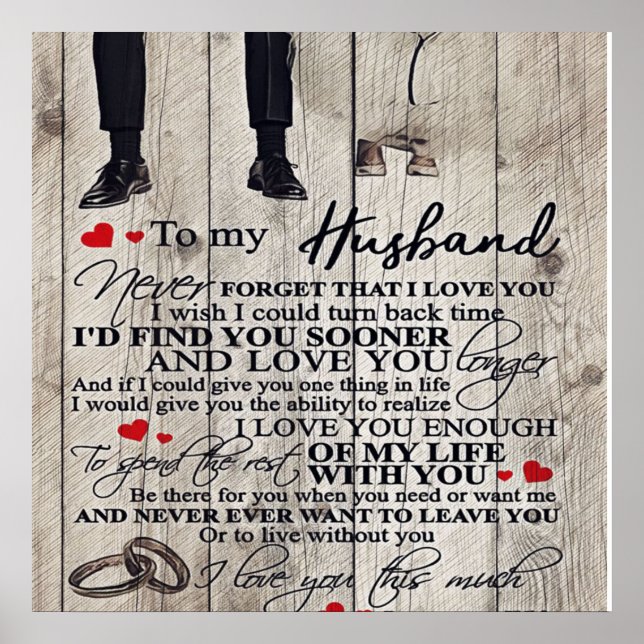 To my Husband
Never FORGET THAT I LOVE YOU
I wish I could turn back time
I'D FIND YOU SOONER
AND LOVE YOU longer
And if I could give you one thing in life
I would give you the ability to realize
I LOVE YOU ENOUGH
To spend the rest OF MY LIFE
WITH YOU
Be there for you when you need or want me
AND NEVER EVER WANT TO LEAVE YOU
Or to live without you
I love you this much